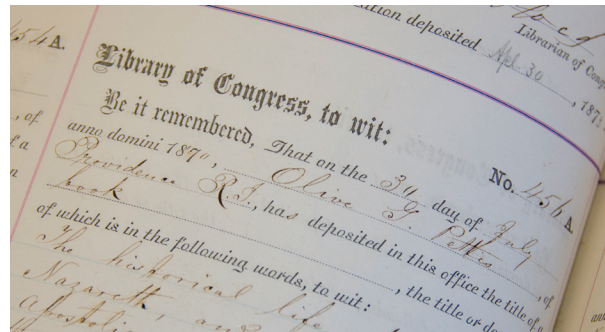 454 A.
, of
of a
n
ation deposited Apl. 30
Librarian of Cong
, 187
Library of Congress, to wit:
No. 456 A.
Be it remembered, That on the 30 day of July
anno domini 1870, Olive G. Pettis
Providence R.I., has deposited in this office the title of a
book, of
of which is in the following words, to wit: , the title or de
The historical life
Nazareth, and
Apostolic